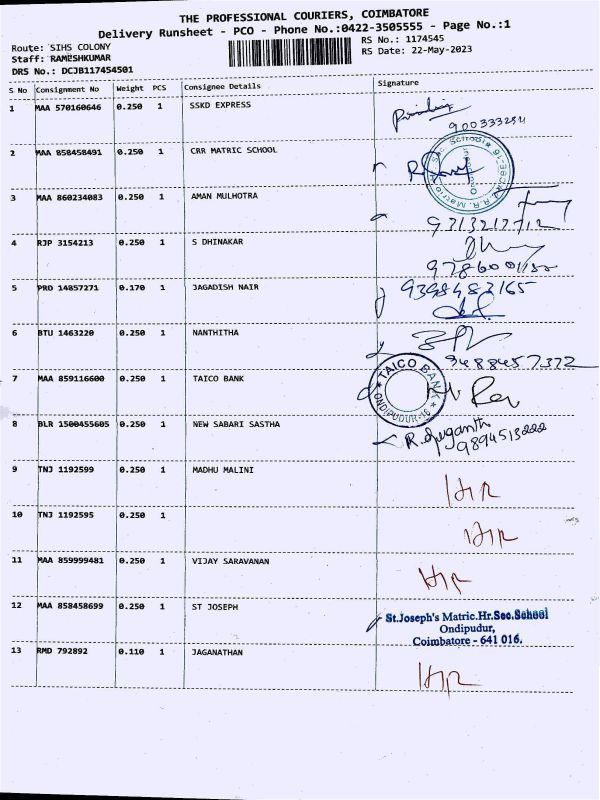 THE PROFESSIONAL COURIERS, COIMBATORE
Delivery Runsheet - PCO - Phone No.:0422-3505555 - Page No.:1
Route: SIHS COLONY
RS No.: 1174545
Staff: RAMESHKUMAR
RS Date: 22-May-2023
DRS No.: DCJB117454501
S No Consignment No Weight PCS Consignee Details Signature
1 MAA 570160646 0.250 1 SSKD EXPRESS
2 MAA 858458491 0.250 1 CRR MATRIC SCHOOL
3 MAA 860234083 0.250 1 AMAN MULHOTRA
4 RJP 3154213 0.250 1 S DHINAKAR
5 PRO 14857271 0.170 1 JAGADISH NAIR
9398483165
6 BTU 1463220 0.250 1 NANTHITHA
9488457372
7 MAA 859116600 0.250 1 TAICO BANK
TAICO BANK
ONDIPUDUR-16
8 BLR 1500455605 0.250 1 NEW SABARI SASTHA
9894513222
9 TNJ 1192599 0.250 1 MADHU MALINI
10 TNJ 1192595 0.250 1
11 MAA 859999481 0.250 1 VIJAY SARAVANAN
12 MAA 858458699 0.250 1 ST JOSEPH
St.Joseph's Matric.Hr.Sec.School
Ondipudur,
Coimbatore - 641 016.
13 RMD 792892 0.110 1 JAGANATHAN